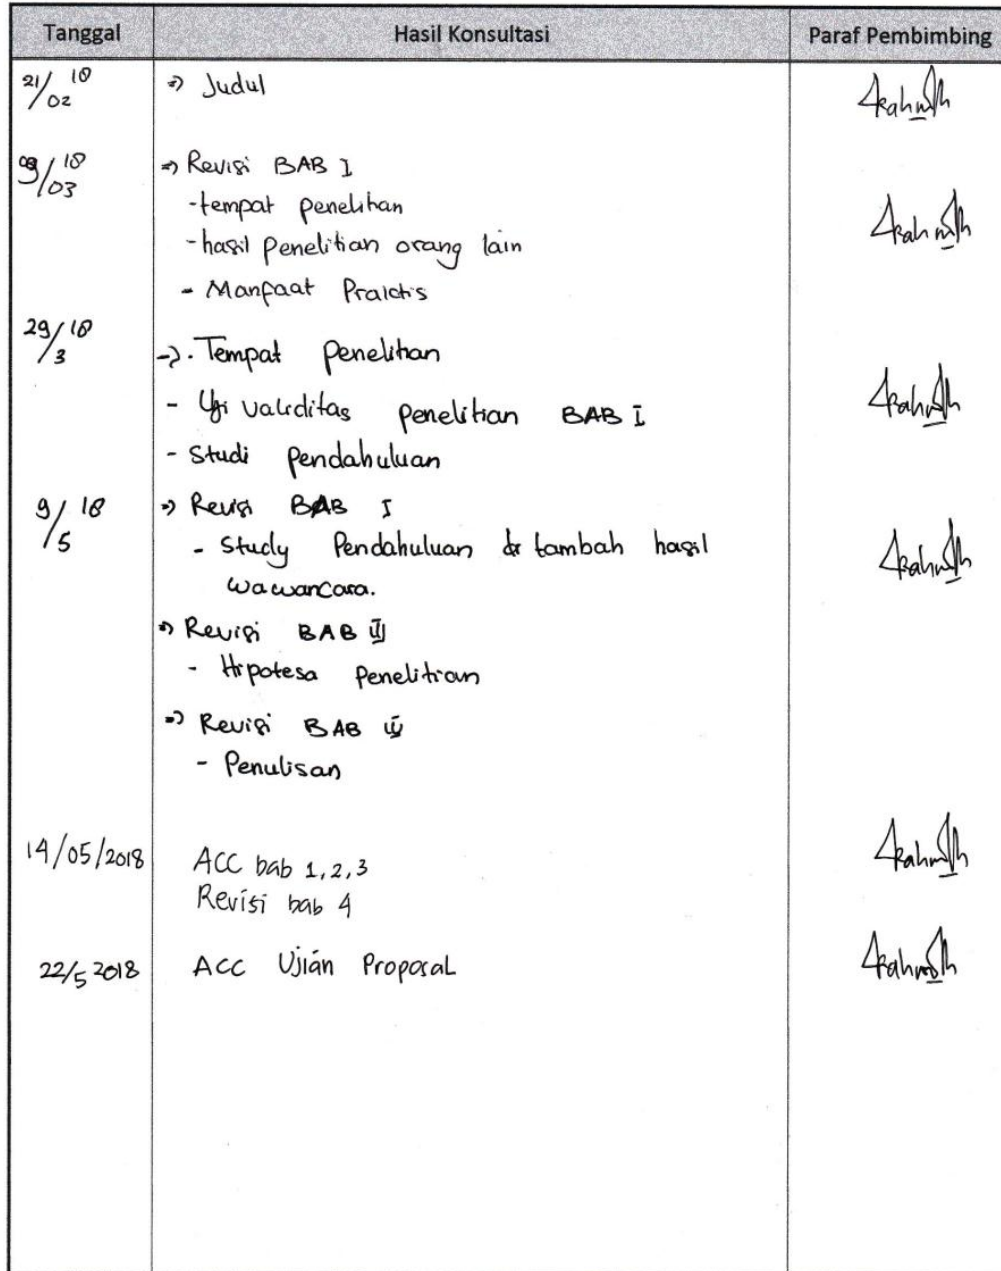 Tanggal Hasil Konsultasi Paraf Pembimbing
21/02 18 => Judul
09/03 18 => Revisi BAB I
- tempat penelitian
- hasil penelitian orang lain
- Manfaat Praktis
29/3 18 -> . Tempat Penelitian
- Uji validitas penelitian BAB I
- Studi pendahuluan
9/5 18 => Revisi BAB I
- Study Pendahuluan di tambah hasil
wawancara.
=> Revisi BAB II
- Hipotesa penelitian
=> Revisi BAB
- Penulisan
14/05/2018 ACC bab 1, 2, 3
Revisi bab 4
22/5 2018 ACC Ujian Proposal